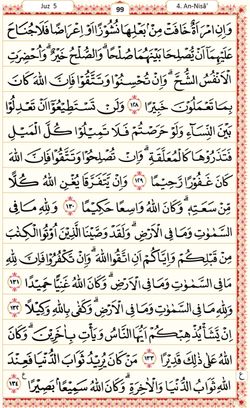 Juz 5 99 4. An-Nisā'
وَاِنِ امْرَاَةٌ خَافَتْ مِنْۢ بَعْلِهَا نُشُوْزًا اَوْ اِعْرَاضًا فَلَا جُنَاحَ
عَلَيْهِمَآ اَنْ يُّصْلِحَا بَيْنَهُمَا صُلْحًا ۗ وَالصُّلْحُ خَيْرٌ ۗ وَاُحْضِرَتِ
الْاَنْفُسُ الشُّحَّ ۗ وَاِنْ تُحْسِنُوْا وَتَتَّقُوْا فَاِنَّ اللّٰهَ كَانَ
بِمَا تَعْمَلُوْنَ خَبِيْرًا ١٢٨ وَلَنْ تَسْتَطِيْعُوْٓا اَنْ تَعْدِلُوْا
بَيْنَ النِّسَاۤءِ وَلَوْ حَرَصْتُمْ فَلَا تَمِيْلُوْا كُلَّ الْمَيْلِ
فَتَذَرُوْهَا كَالْمُعَلَّقَةِ ۗ وَاِنْ تُصْلِحُوْا وَتَتَّقُوْا فَاِنَّ اللّٰهَ
كَانَ غَفُوْرًا رَّحِيْمًا ١٢٩ وَاِنْ يَّتَفَرَّقَا يُغْنِ اللّٰهُ كُلًّا
مِّنْ سَعَتِهٖ ۗ وَكَانَ اللّٰهُ وَاسِعًا حَكِيْمًا ١٣٠ وَلِلّٰهِ مَا فِى
السَّمٰوٰتِ وَمَا فِى الْاَرْضِ ۗ وَلَقَدْ وَصَّيْنَا الَّذِيْنَ اُوْتُوا الْكِتٰبَ
مِنْ قَبْلِكُمْ وَاِيَّاكُمْ اَنِ اتَّقُوا اللّٰهَ ۗ وَاِنْ تَكْفُرُوْا فَاِنَّ لِلّٰهِ
مَا فِى السَّمٰوٰتِ وَمَا فِى الْاَرْضِ ۗ وَكَانَ اللّٰهُ غَنِيًّا حَمِيْدًا ١٣١
وَلِلّٰهِ مَا فِى السَّمٰوٰتِ وَمَا فِى الْاَرْضِ ۗ وَكَفٰى بِاللّٰهِ وَكِيْلًا ١٣٢
اِنْ يَّشَأْ يُذْهِبْكُمْ اَيُّهَا النَّاسُ وَيَأْتِ بِاٰخَرِيْنَ ۗ وَكَانَ
اللّٰهُ عَلٰى ذٰلِكَ قَدِيْرًا ١٣٣ مَنْ كَانَ يُرِيْدُ ثَوَابَ الدُّنْيَا فَعِنْدَ
اللّٰهِ ثَوَابُ الدُّنْيَا وَالْاٰخِرَةِ ۗ وَكَانَ اللّٰهُ سَمِيْعًاۢ بَصِيْرًا ١٣٤